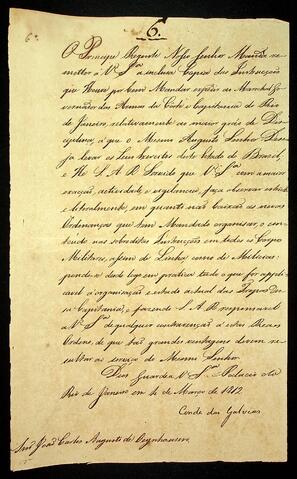 6.
6.
O Principe Regente Nosso Senhor Manda re-
metter á V. S.ª a inclusa Copia das Instrucções
que Houve por bem Mandar expedir ao Marechal Go-
vernador das Armas da Corte e Capitania do Rio
de Janeiro, relativamente ao maior gráo de Dis-
ciplina, á que o Mesmo Augusto Senhor Dese-
ja levar os seus Exercitos deste Estado do Brazil,
e He S. A. R. Servido que V. S.ª com a maior
exacção, actividade e vigilancia, faça observar estricta
e literalmente, em quanto não baixão as novas
Ordenanças que tem Mandado organisar, o con-
teudo nas sobreditas Instrucções em todos os Corpos
Militares, assim de Linha como de Milicias,
pondo-se desde logo em pratica tudo o que for appli-
cavel á organização e estado actual das Tropas des-
sa Capitania, e fazendo S. A. R. responsavel
a V. S.ª de qualquer contravenção á estas Reaes
Ordens, de que tão grandes vantagens devem re-
sultar ao serviço do Mesmo Senhor.
Deos Guarde a V. S.ª Palacio do
Rio de Janeiro em 4 de Março de 1812.
Conde das Galveas
Snr. João Carlos Augusto de Oeynhausen